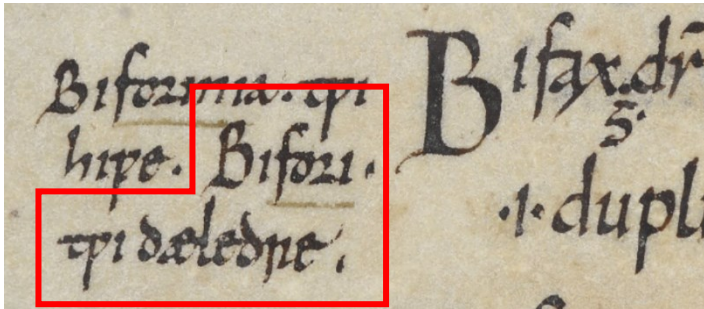 Biforma. tƿi
hiƿe. Bifori.
tƿi dæledre.
Bifax. dr̄
ḡ.
.i. dupli